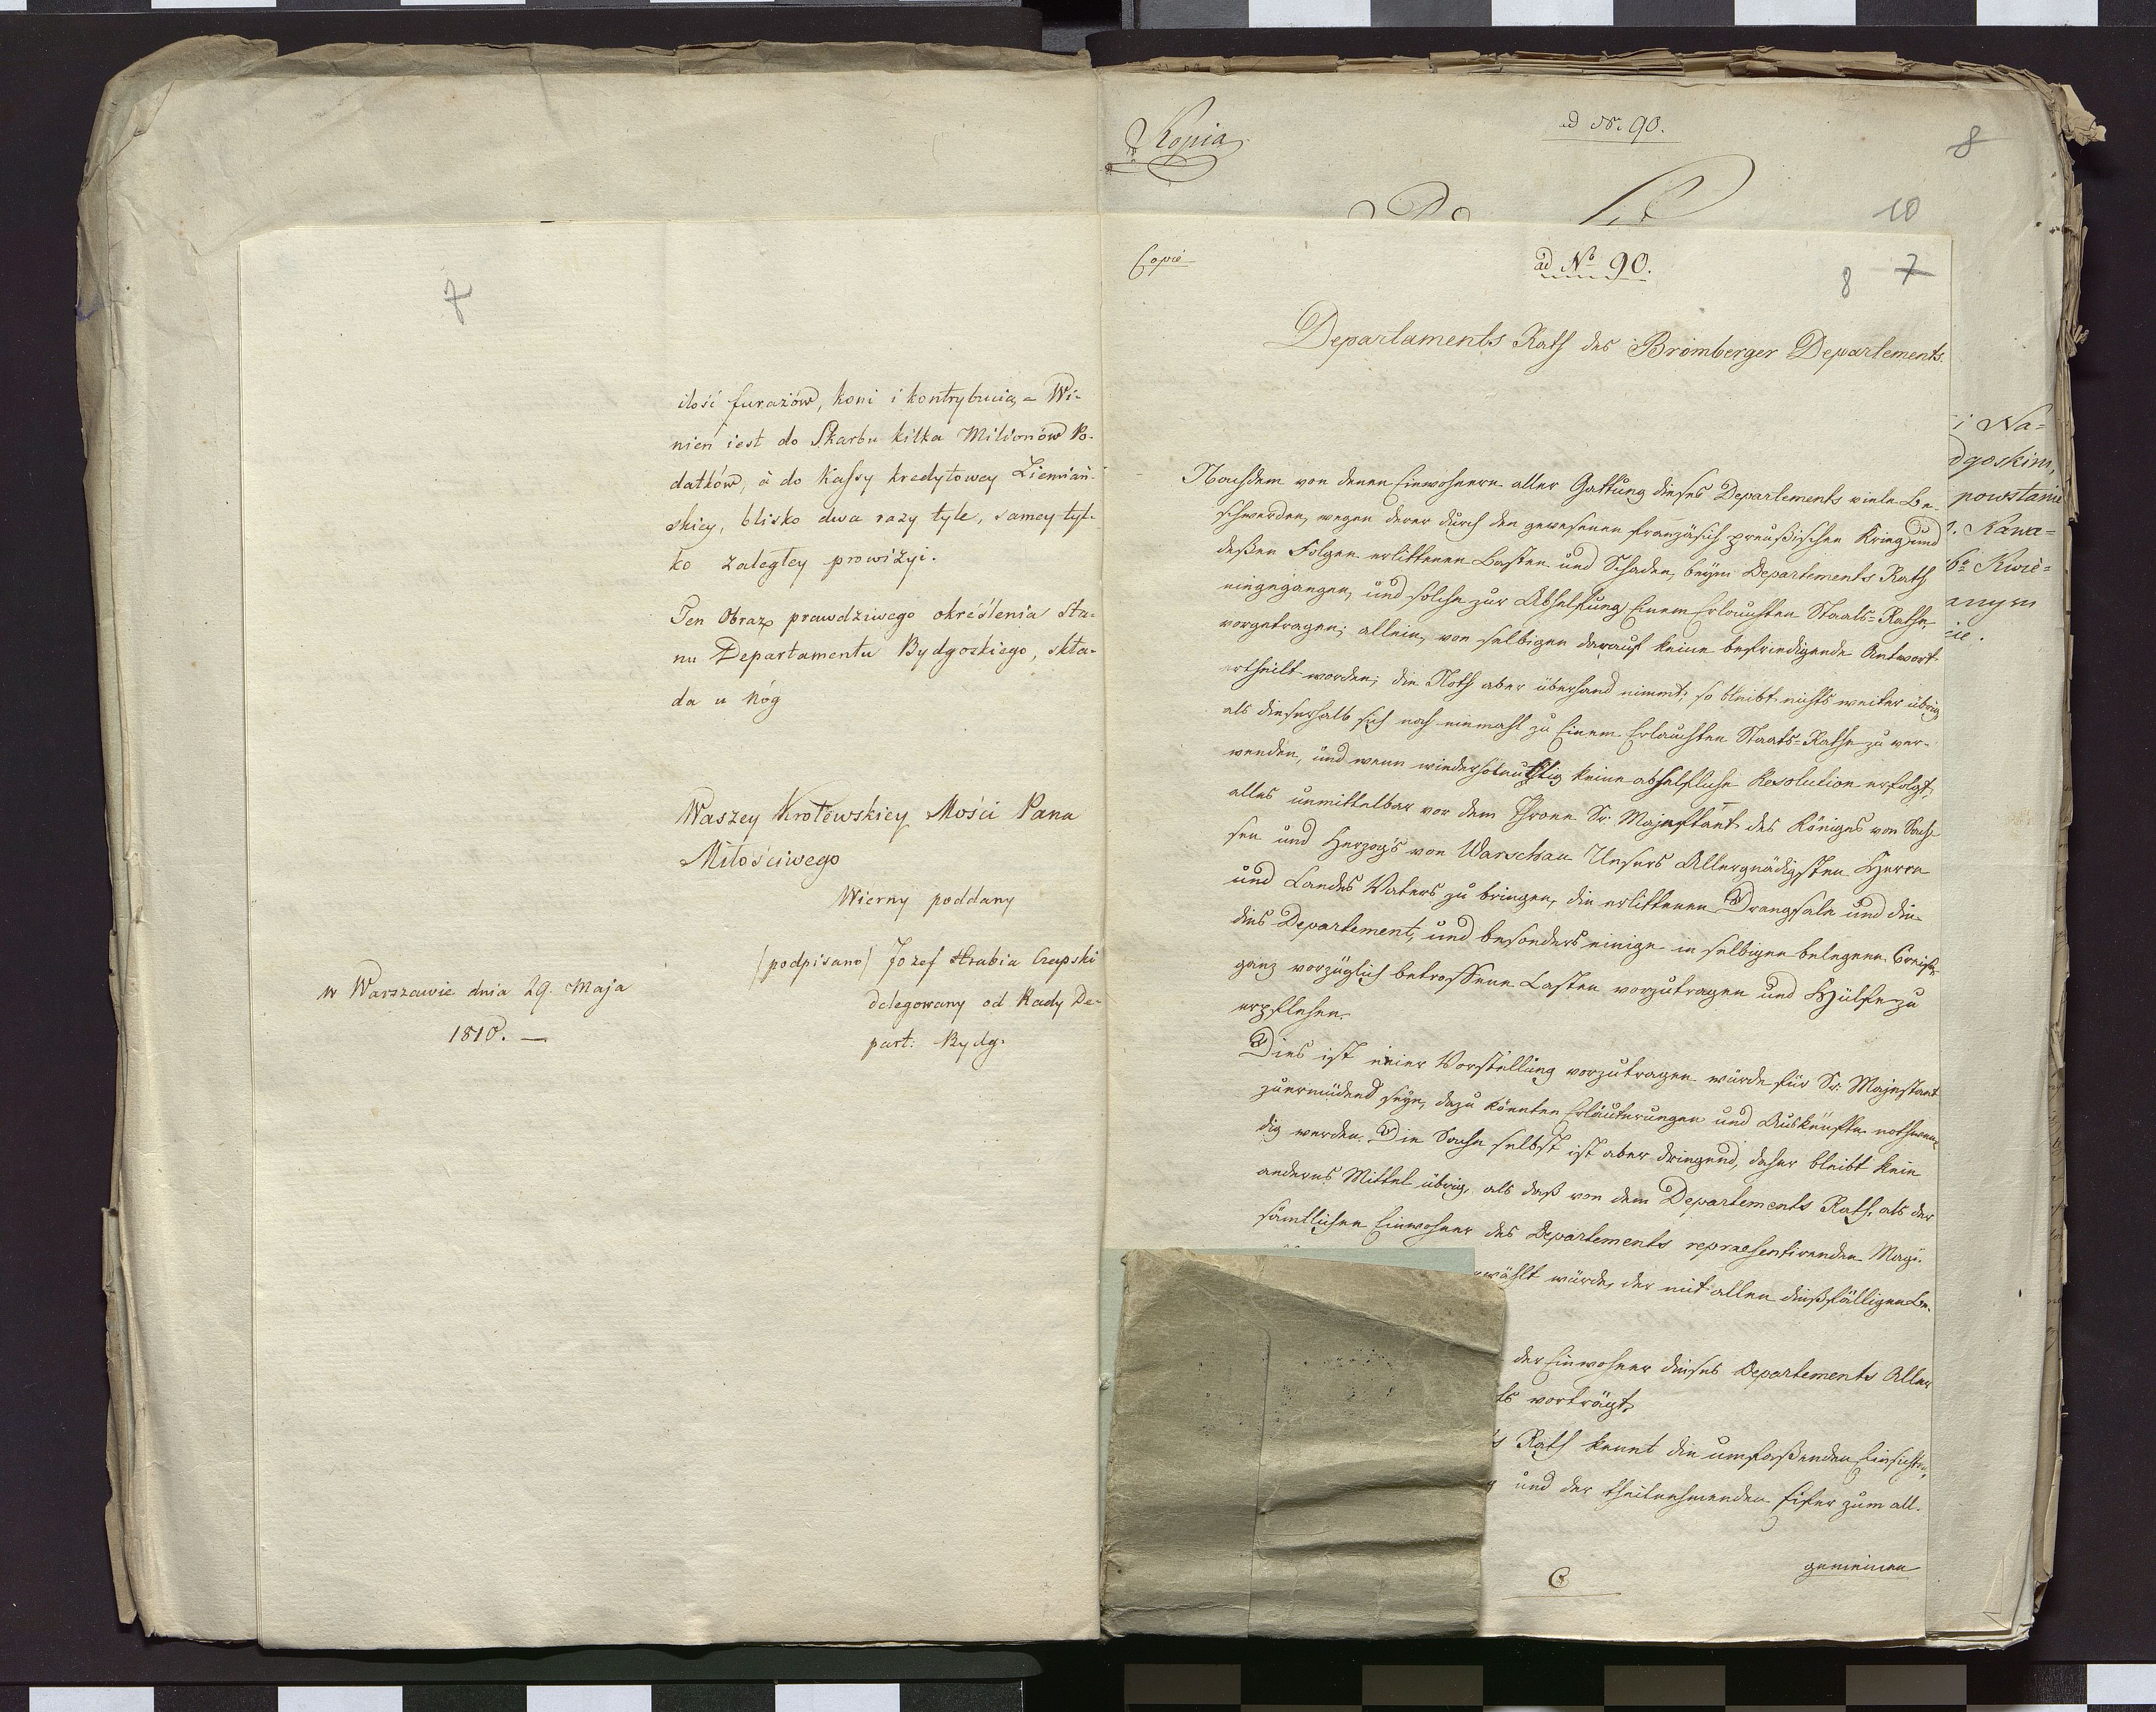 7
ilość furażów, koni i kontrybucią, - Wi-
nien iest do Skarbu kilka Milionów Po-
datków, à do Kassy kredytowey Ziemiań-
skiey, blisko dwa razy tyle, samey tyl-
ko zaległey prowizyi.
Ten Obraz prawdziwego określenia sta-
nu Departamentu Bydgoskiego, skła-
da u nóg
Waszey Krolewskiey Mości Pana
Miłościwego
Wierny poddany
(podpisano) Jozef Hrabia Czapski
delegowany od Rady De-
part: Bydg.
w Warszawie dnia 29. Maja
1810. —
Kopia
ad Nr. 90.
8
10
i Na=
dgoskim,
powstanie
Kawa=
Kwie=
anym
Copie
ad No 90.
8 7
Departaments Rath des Bromberger Departements.
Nachdem von denen Einwohnern aller Gattung dieses Departements viele Be-
schwerden, wegen derer durch den gewesenen französisch preußischen Krieg und
deßen Folgen erlittenen Lasten und Schaden, beym Departements Rath
eingegangen, und solche zur Abhelfung Einem Erlauchten Staats-Rathe,
vorgetragen; allein, von selbigen darauf keine befriedigende Antwort
ertheilt worden; die Noth aber überhand nimmt; so bleibt nichts weiter übrig
als dieserhalb sich noch einmahl zu Einem Erlauchten Staats-Rathe zu ver-
wenden, und wenn wiederholentlig keine abhelfliche Resolution erfolgt,
alles unmittelbar vor dem Throne Sr: Majestaet des Königes von Sach-
sen und Herzogs von Warschau Unsers Allergnädigsten Herrn
und Landes Vaters zu bringen, die erlittenen Drangsale und die
dies Departement, und besonders einige in selbigen belegene Creise
ganz vorzüglich betroffene Lasten vorzutragen und Hülfe zu
erpflehen.
Dies ist einer Vorstellung vorzutragen würde für Sr: Majestaet
zu ermüdend seyn, dazu könnten Erläuterungen und Auskünfte nothwen-
dig werden. Die Sache selbst ist aber dringend, daher bleibt kein
anderes Mittel übrig, als daß von dem Departements Rath, als der
sämtlichen Einwohner des Departements repraesentirenden Magi-
wählt würde, der mit allen dießfälligen Be-
der Einwohner dieses Departements Aller
ts vorträgt,
s Rath kennt die umfaßenden Einsichten,
g und der theilnehmenden Eifer zum all-
C
gemeinen